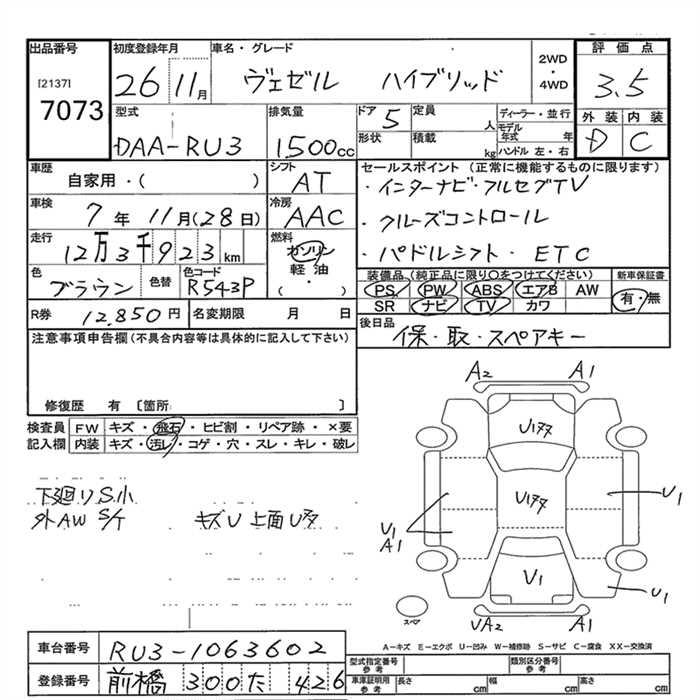 出品番号 初度登録年月 車名・グレード 2WD・4WD 評価点
[2137] 7073 26 11月 ヴェゼル ハイブリッド 3.5
型式 排気量 ドア 定員 人 ディーラー・並行 外装 内装
DAA-RU3 1500cc 5 モデル年式 年 D C
形状 積載 kg ハンドル 左・右
車歴 シフト セールスポイント (正常に機能するものに限ります)
自家用・( ) AT ・インターナビ・フルセグTV
車検 7年11月(28日) 冷房 AAC ・クルーズコントロール
走行 12万3千923km 燃料 ガソリン 軽油 ・( ) ・パドルシフト・ETC
色 ブラウン 色替 色コード R543P 装備品 (純正品に限り○をつけてください) 新車保証書
PS PW ABS エアB AW 有・無
SR ナビ TV カワ
R券 12,850円 名変期限 月 日 後日品
保・取・スペアキー
注意事項申告欄(不具合内容等は具体的に記入して下さい)
修復歴 有 [箇所: ]
検査員記入欄 FW キズ・飛石・ヒビ割・リペア跡・×要
内装 キズ・汚レ・コゲ・穴・スレ・キレ・破レ
A2 A1
下廻りS小
外AW S/T キズU 上面U
U1
U1
A1
U1
U1
UA2 A1
スペア
A-キズ E-エクボ U-凹み W-補修跡 S-サビ C-腐食 XX-交換済
車台番号 RU3-1063602 型式指定番号 参考 類別区分番号 参考
登録番号 前橋 300 た 426 車車証明用 参考 長さ cm 幅 cm 高さ cm